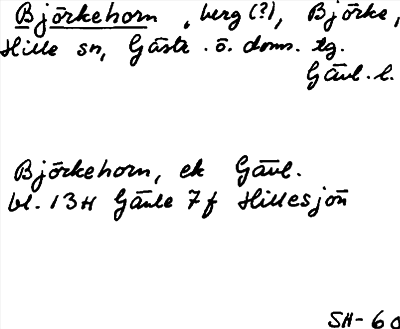 Björkehorn, berg (?), Björke,
Hille sn, Gästr. ö. doms. tg.
Gävl. l.
Björkehorn, ek Gävl.
bl. 13H Gävle 7f Hillesjön
SH-60